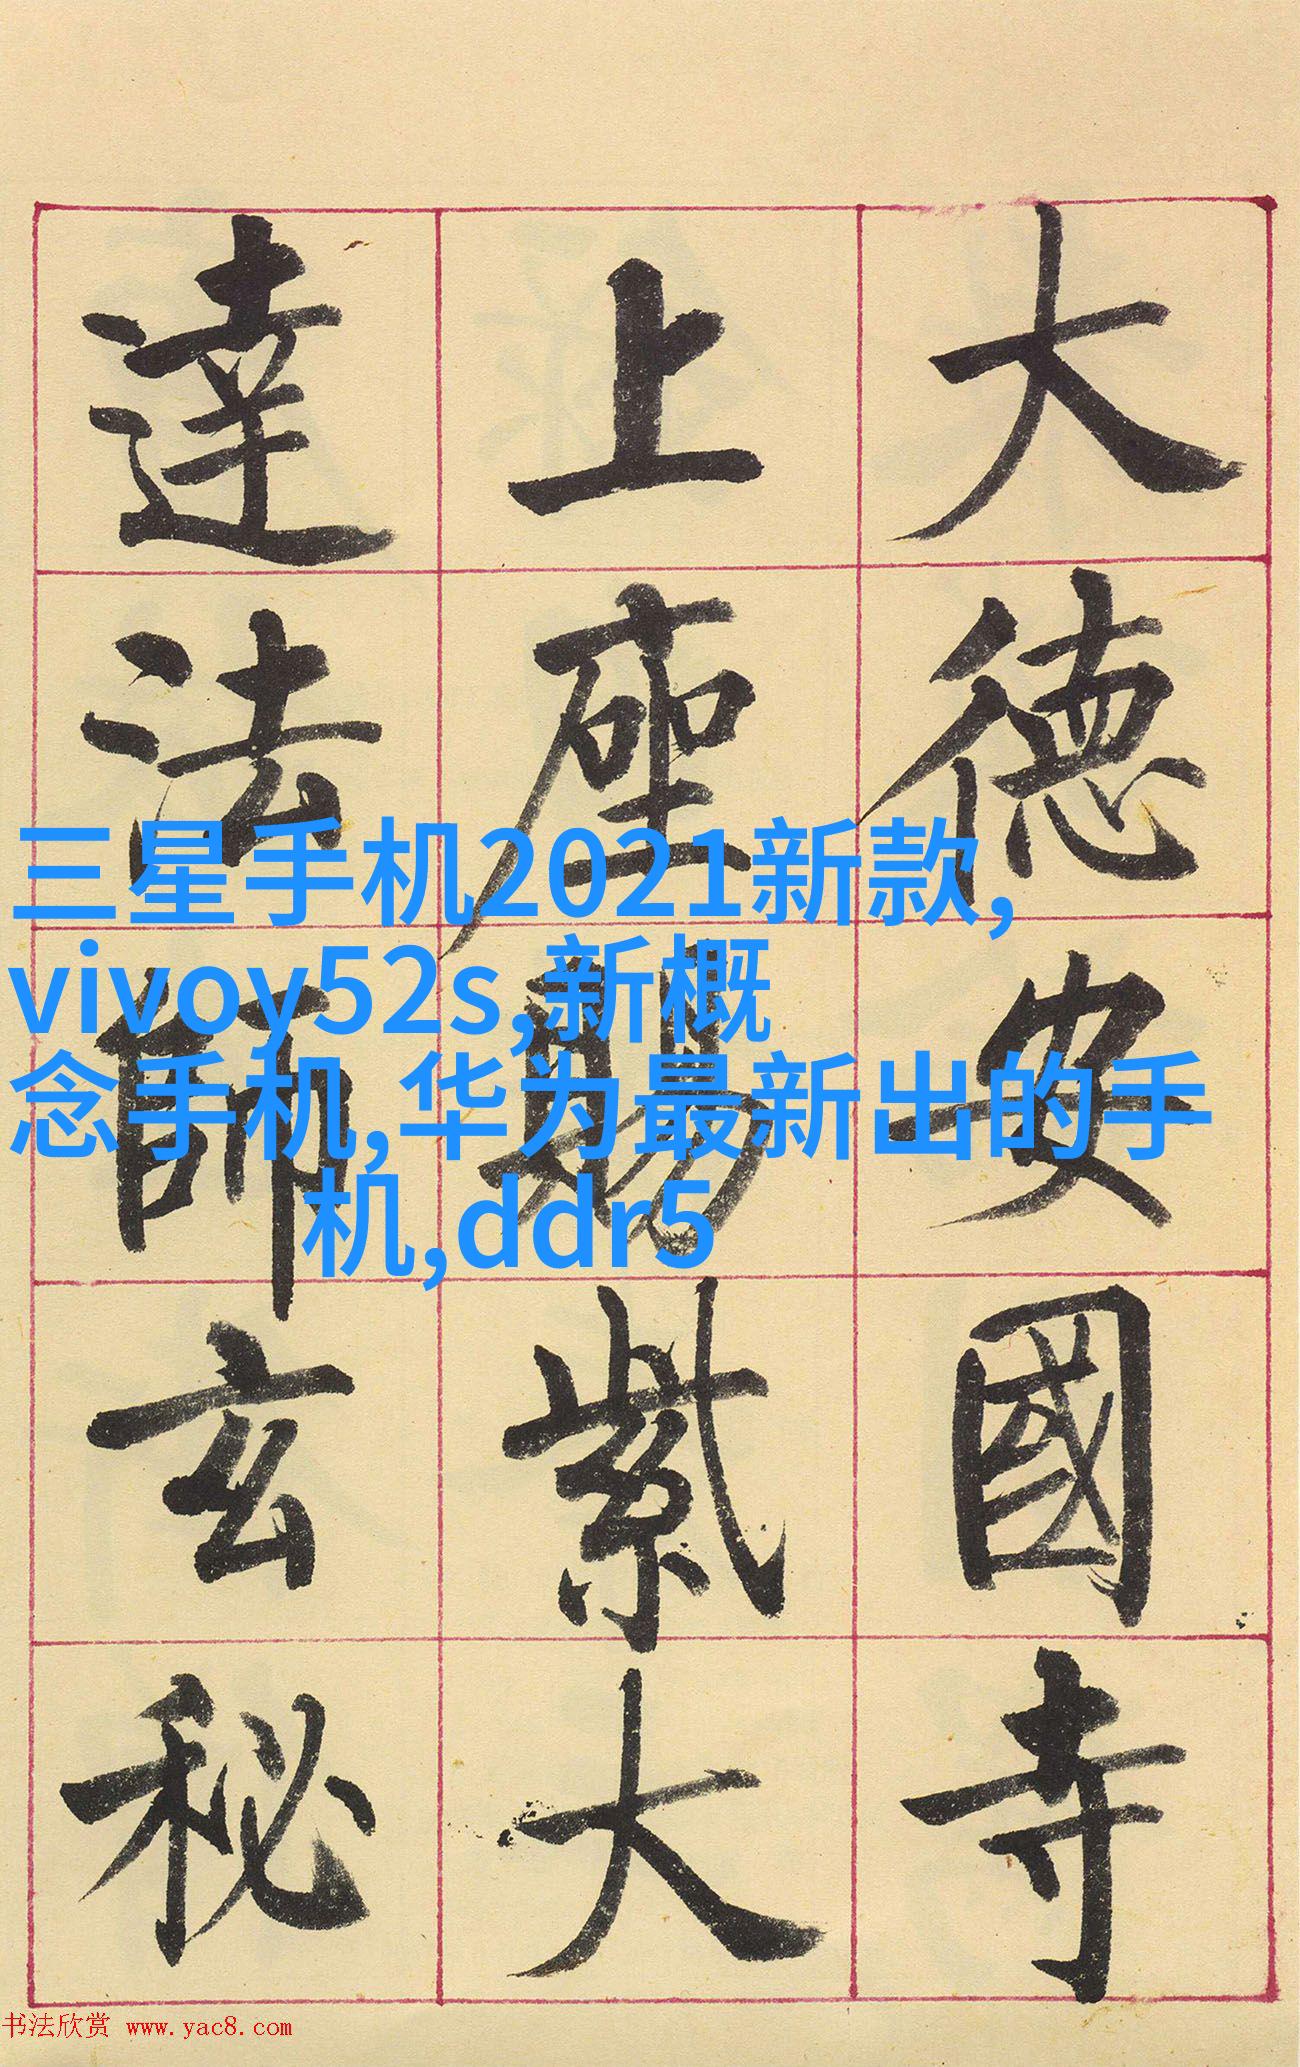 大德安國寺
上座賜紫大
達法師玄秘
三星手机2021新款,
vivoy52s,新概
念手机,华为最新出的手
机,ddr5
书法欣赏 www.yac8.com